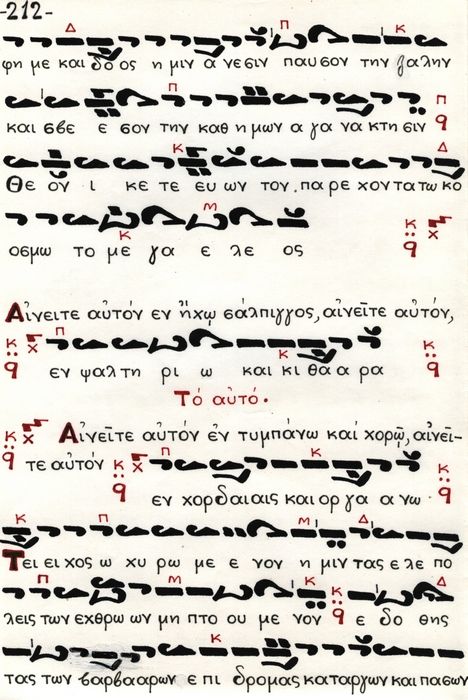 -212-
φη με και δο ος η μιν α νεσιν παυσον την ζαλην
και σβε ε σον την καθ η μων α γα να κτη σιν
Θε ον ι κε τε ευ ων τον. πα ρε χοντα τω κο
οσμω το με γα ε λε ος
Αἰνειτε αὐτόν εν ἤχῳ σάλπιγγος, αἰνεῖτε αὐτόν,
εν ψαλτη ρι ω και κι θα α ρα
Τό αὐτό.
Αἰνεῖτε αὐτόν ἐν τυμπάνω καί χορῷ, αἰνεῖ-
τε αὐτόν
εν χορδαι αις και ορ γα α νω
Τει ει χος ω χυ ρω με ε νον η μιν τας ε λε πο
λεις των εχθρω ων μη πτο ου με νον ε δο θης
τας των βαρβααρων ε πι δρομας καταργων και πασων